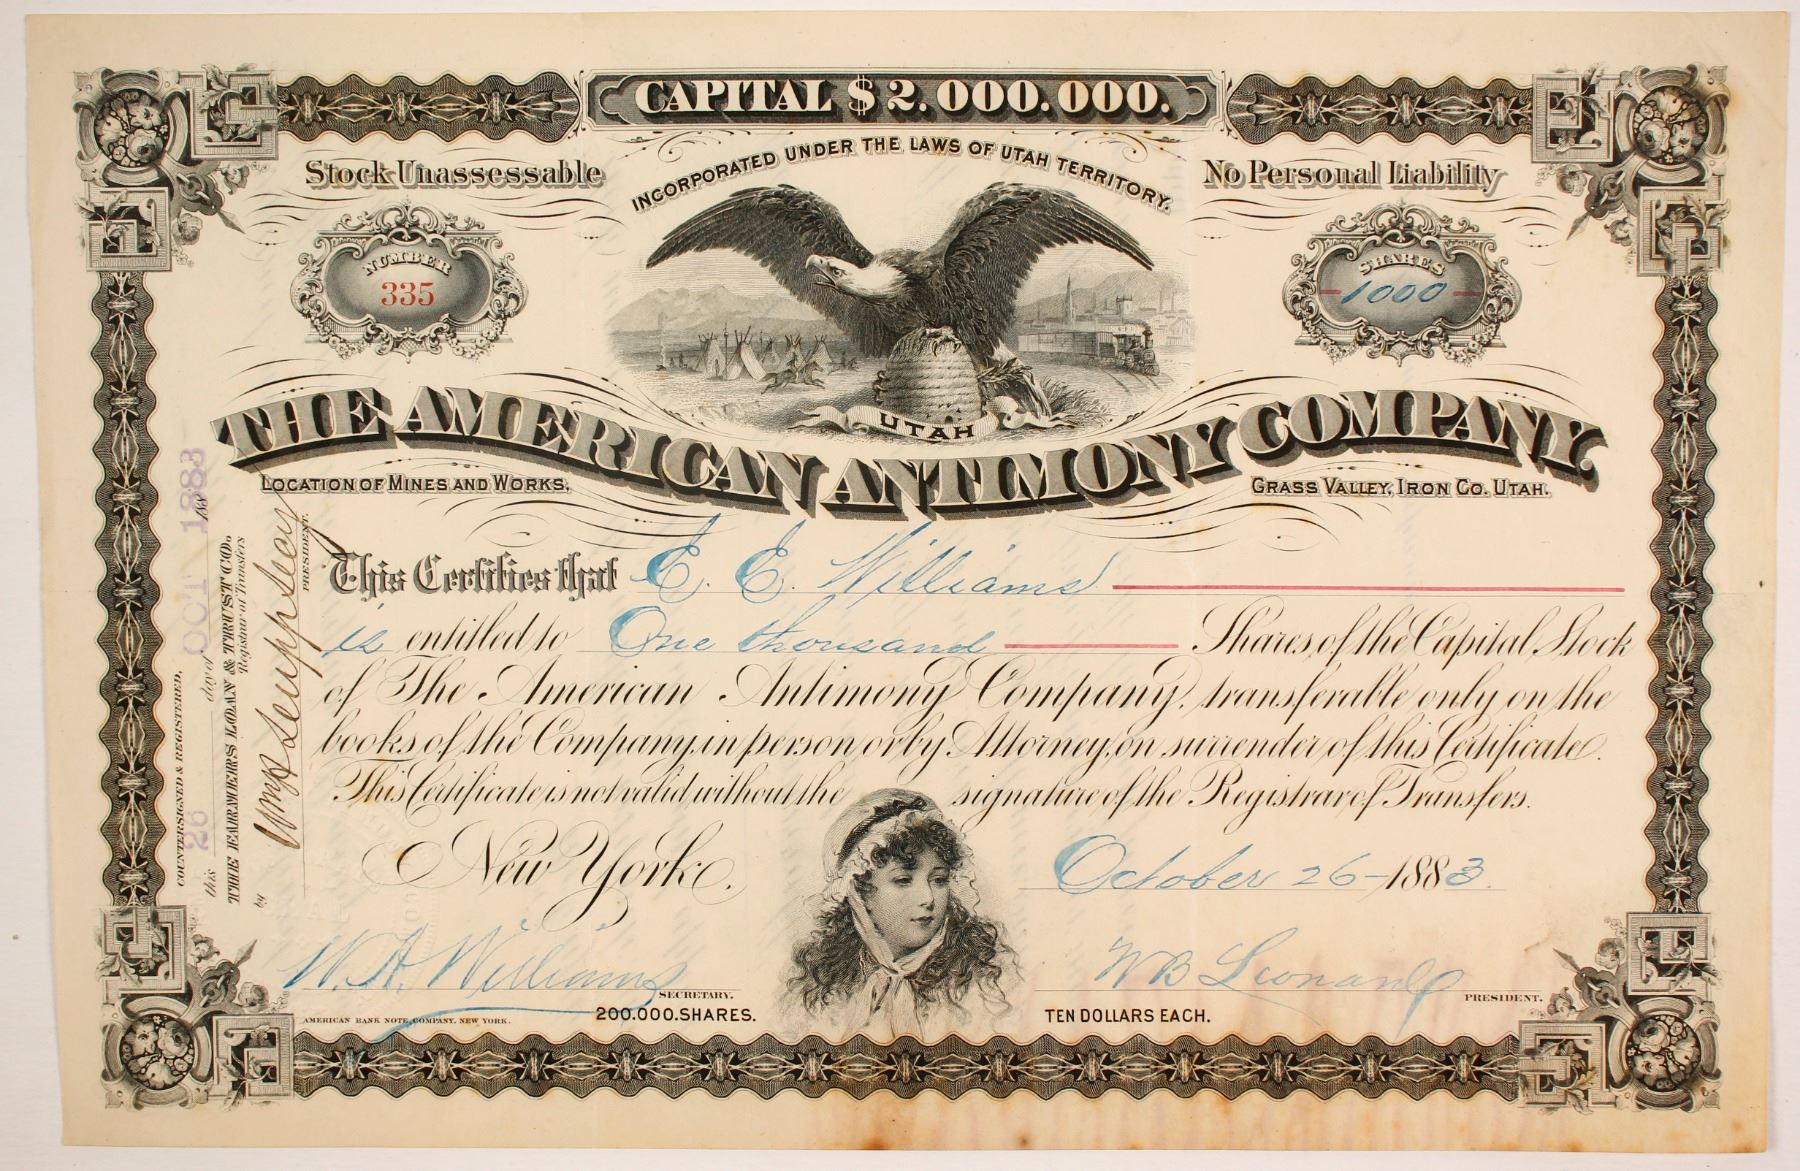 CAPITAL $2.000.000.
Stock Unassessable
INCORPORATED UNDER THE LAWS OF UTAH TERRITORY.
No Personal Liability
NUMBER
335
SHARES
1000
UTAH
THE AMERICAN ANTIMONY COMPANY.
LOCATION OF MINES AND WORKS,
GRASS VALLEY, IRON CO. UTAH.
This Certifies that E. E. Williams
is entitled to One thousand Shares of the Capital Stock
of The American Antimony Company, transferable only on the
books of the Company, in person or by Attorney, on surrender of this Certificate.
This Certificate is not valid without the signature of the Registrar of Transfers.
New York,
October 26 - 1883
W. A. Williams
SECRETARY.
W B Leonard
PRESIDENT.
AMERICAN BANK NOTE COMPANY, NEW YORK.
200.000. SHARES.
TEN DOLLARS EACH.
COUNTERSIGNED & REGISTERED,
this 26 day of OCT 1883 188
THE FARMERS LOAN & TRUST CO.
Registrar of Transfers
by
PRESIDENT.